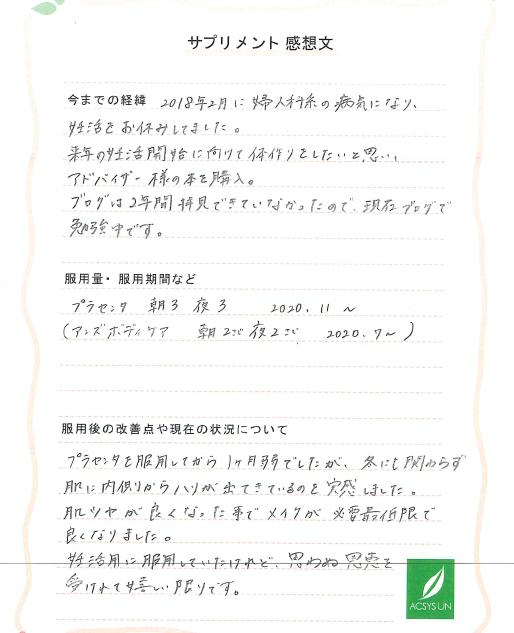 サプリメント 感想文
今までの経緯 2018年2月に婦人科系の病気になり、
妊活をお休みしてました。
来年の妊活開始に向けて体作りをしたいと思い、
アドバイザー様の本を購入。
ブログは2年間拝見できていなかったので、現在ブログで
勉強中です。
服用量・服用期間など
プラセンタ 朝3 夜3 2020.11～
(アンズボディケア 朝2こ 夜2こ 2020.7～)
服用後の改善点や現在の状況について
プラセンタを服用してから1ヶ月弱でしたが、冬にも関わらず
肌に内側からハリが出てきているのを実感しました。
肌ツヤが良くなった事でメイクが必要最低限で
良くなりました。
妊活用に服用していたけれど、思わぬ恩恵を
受けれて嬉しい限りです。
ACSYS UN